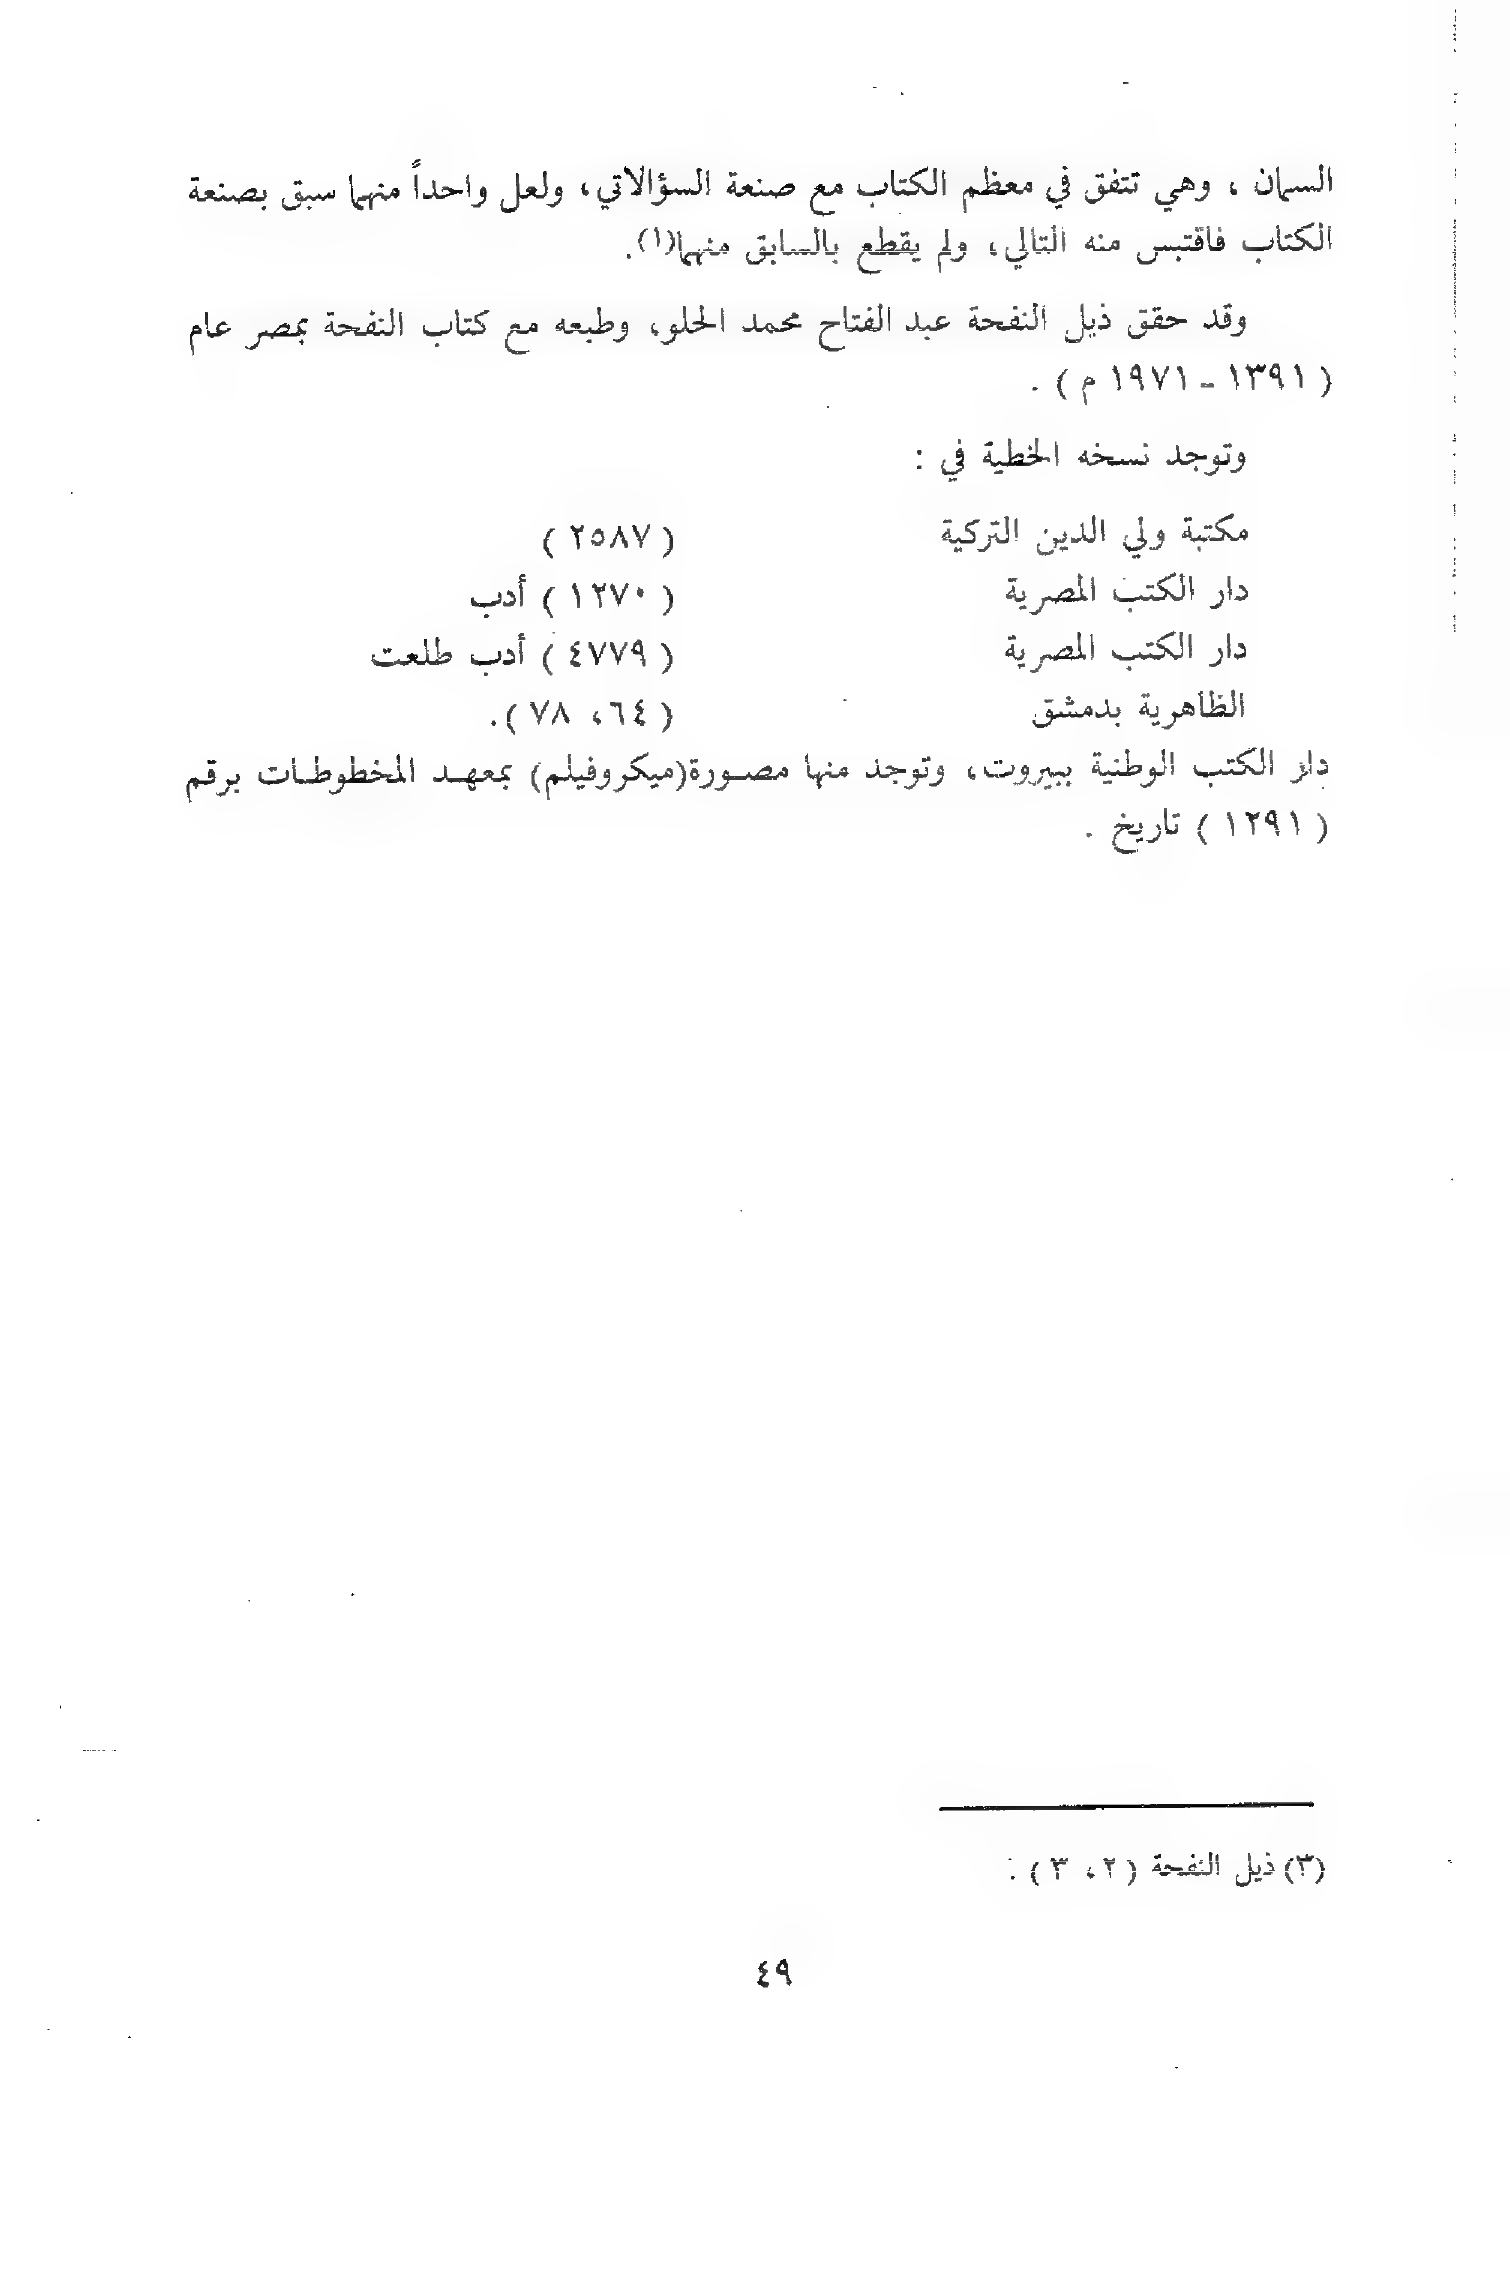 السمان ، وهي تتفق في معظم الكتاب مع صنعة السؤالاتي، ولعل واحداً منهما سبق بصنعة
الكتاب فاقتبس منه التالي، ولم يقطع بالسابق منهما(١).
وقد حقق ذيل النفحة عبد الفتاح محمد الحلو، وطبعه مع كتاب النفحة بمصر عام
( ١٣٩١ - ١٩٧١ م ) .
وتوجد نسخه الخطية في :
مكتبة ولي الدين التركية ( ٢٥٨٧ )
دار الكتب المصرية ( ١٢٧٠ ) أدب
دار الكتب المصرية ( ٤٧٧٩ ) أدب طلعت
الظاهرية بدمشق ( ٦٤، ٧٨ ).
دار الكتب الوطنية ببيروت، وتوجد منها مصورة(ميكروفيلم) بمعهد المخطوطات برقم
( ١٢٩١ ) تاريخ .
(٣) ذيل النفحة ( ٢، ٣ ) .
٤٩